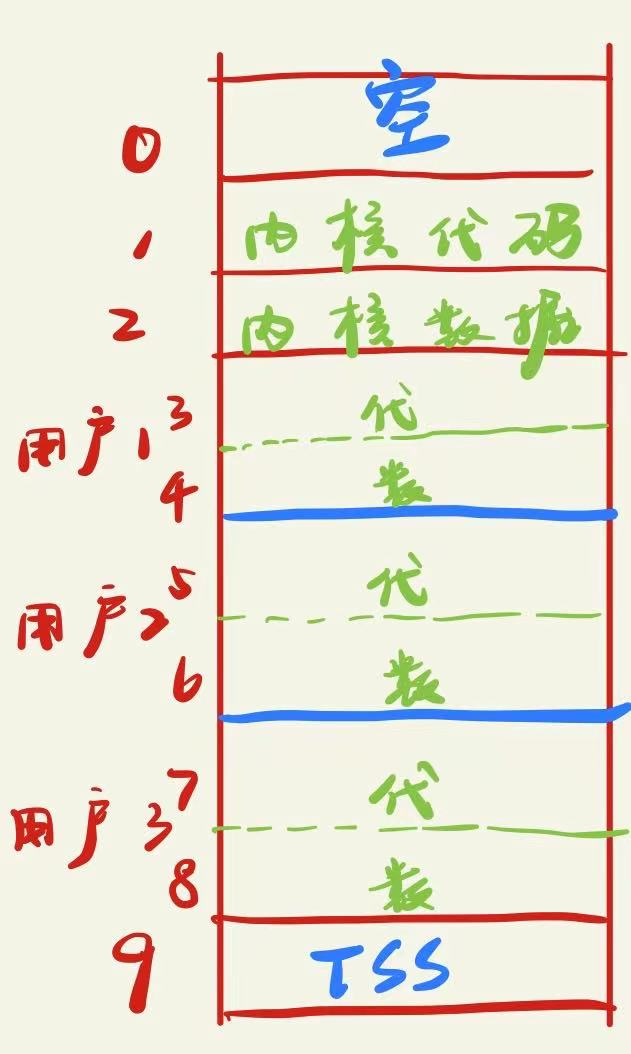 0 空
1 内核代码
2 内核数据
用户1 3 代
4 数
用户2 5 代
6 数
用户3 7 代
8 数
9 TSS